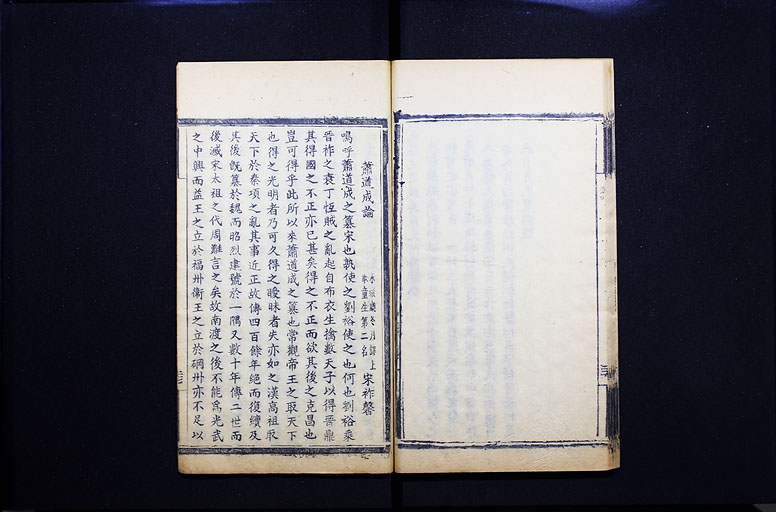 蕭道成論
本童生第二名 宋祚磐
嗚呼蕭道成之篡宋也孰使之劉裕使之也何也劉裕乘
晉祚之衰丁恆賊之亂起自布衣生擒數天子以得晉鼎
其得國之不正亦已甚矣得之不正而欲其後之克昌也
豈可得乎此所以來蕭道成之篡也常觀帝王之取天下
也得之光明者乃可久得之曖昧者失亦如之漢高祖取
天下於秦項之亂其事近正故傳四百餘年絕而復續及
其後旣篡於魏而昭烈建號於一隅又數十年傳二世而
後滅宋太祖之代周難言之矣故南渡之後不能爲光武
之中興而益王之立於福州衞王之立於碙州亦不足以